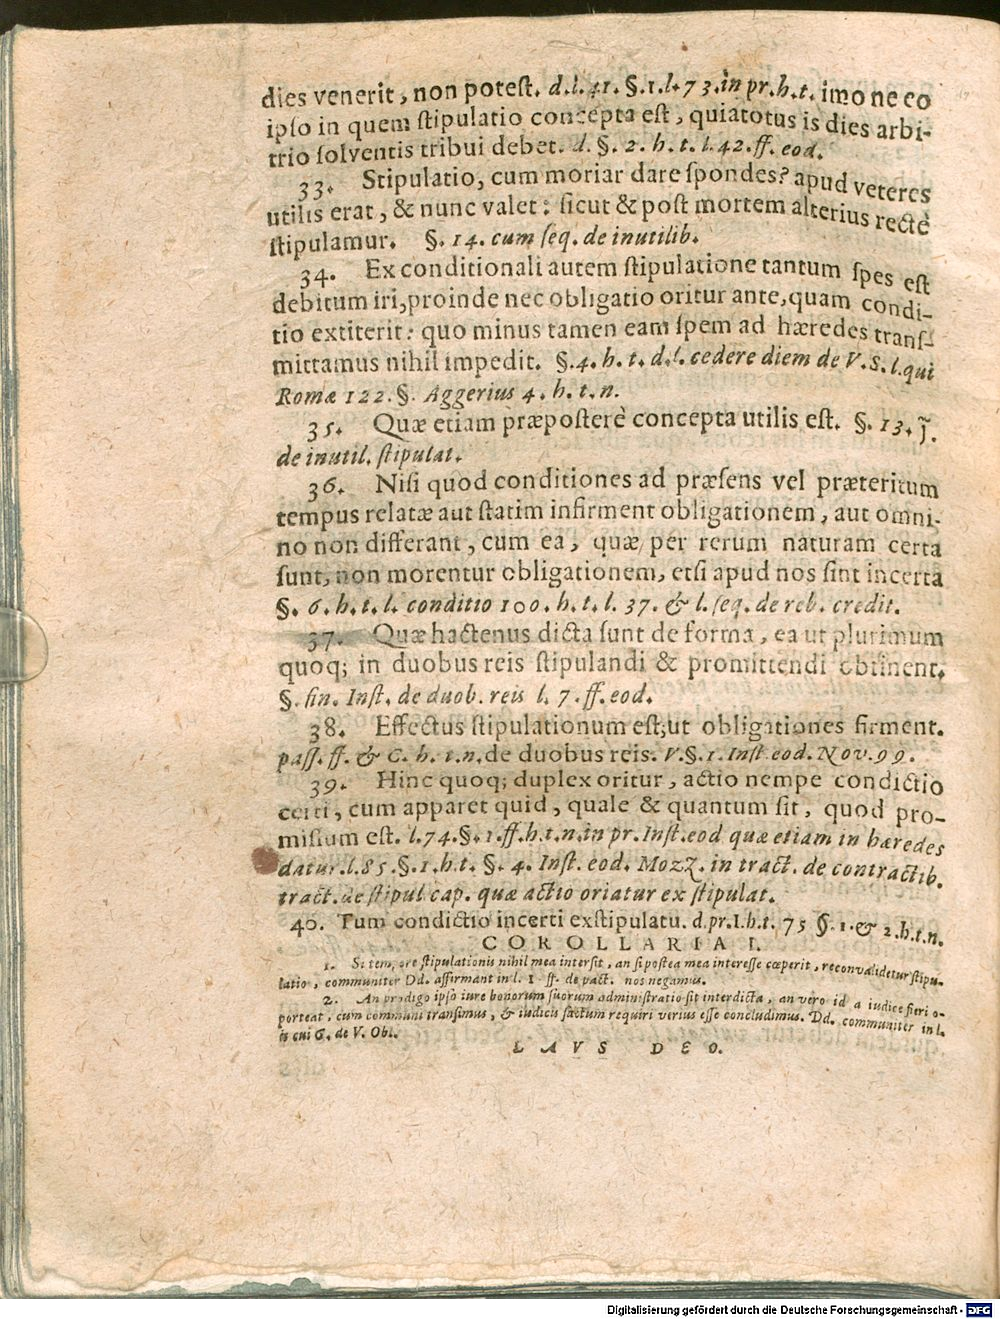 dies venerit, non potest. d. l. 41. §. 1. l. 73. in pr. h. t. imo ne eo
ipso in quem stipulatio concepta est, quia totus is dies arbi-
trio solventis tribui debet. d. §. 2. h. t. l. 42. ff. eod.
33. Stipulatio, cum moriar dare spondes? apud veteres
utilis erat, & nunc valet: sicut & post mortem alterius rectè
stipulamur. §. 14. cum seq. de inutilib.
34. Ex conditionali autem stipulatione tantum spes est
debitum iri, proinde nec obligatio oritur ante, quam condi-
tio extiterit: quo minus tamen eam spem ad hæredes trans-
mittamus nihil impedit. §. 4. h. t. d. l. cedere diem de V. S. l. qui
Romæ 122. §. Aggerius 4. h. t. n.
35. Quæ etiam præposterè concepta utilis est. §. 13. J̃.
de inutil. stipulat.
36. Nisi quod conditiones ad præsens vel præteritum
tempus relatæ aut statim infirment obligationem, aut omni-
no non differant, cum ea, quæ per rerum naturam certa
sunt, non morentur obligationem, etsi apud nos sint incerta
§. 6. h. t. l. conditio 100. h. t. l. 37. & l. seq. de reb. credit.
37. Quæ hactenus dicta sunt de forma, ea ut plurimum
quoq; in duobus reis stipulandi & promittendi obtinent.
§. fin. Inst. de duob. reis l. 7. ff. eod.
38. Effectus stipulationum est; ut obligationes firment.
pass. ff. & C. h. t. n. de duobus reis. V. §. 1. Inst. eod. Nov. 99.
39. Hinc quoq; duplex oritur, actio nempe condictio
certi, cum apparet quid, quale & quantum sit, quod pro-
missum est. l. 74. §. 1. ff. h. t. n. in pr. Inst. eod quæ etiam in hæredes
datur. l. 85. §. 1. h. t. §. 4. Inst. eod. Mozz. in tract. de contractib.
tract. de stipul cap. quæ actio oriatur ex stipulat.
40. Tum condictio incerti ex stipulatu. d. pr. l. h. t. 75 §. 1. & 2. h. t. n.
COROLLARIA I.
1. Si tempore stipulationis nihil mea intersit, an si postea mea interesse cœperit, reconvalidetur stipu-
latio, communiter Dd. affirmant in l. 1 ff. de pact. nos negamus.
2. An prodigo ipso iure bonorum suorum administratio sit interdicta, an vero id a iudice fieri o-
porteat, cum communi transimus, & iudicis factum requiri verius esse concludimus. Dd. communiter in l.
is cui C. de V. Obl.
LAVS DEO.
Digitalisierung gefördert durch die Deutsche Forschungsgemeinschaft - DFG